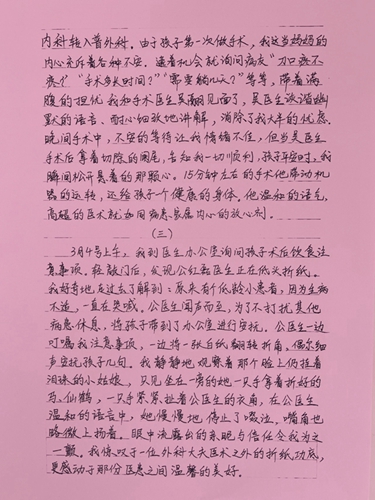 内科转入普外科。由于孩子第一次做手术，我这当妈妈的
内心充斥着各种不安。逮着机会就询问病友“刀口疼不
疼？”“手术多长时间？”“需要躺几天？”等等，带着满
腹的担忧我和手术医生吴翩见面了，吴医生诙谐幽
默的语言、耐心细致地讲解，消除了我大半的忧虑。
晚间手术中，不安的等待让我情绪不佳，但当吴医生
手术后拿着切除的阑尾，告知我一切顺利，孩子平安时，我
瞬间松开悬着的那颗心。15分钟左右的手术他带动机
器的运转，还给孩子一个健康的身体。他温和的语气，
高超的医术就如同病患家属内心的放心剂。
（三）
3月4号上午，我到医生办公室询问孩子术后饮食注
意事项。轻敲门后，发现公红磊医生正在低头折纸。
我好奇地走过去了解到：原来有个低龄小患者，因为生病
不适，一直在哭喊。公医生闻声而至，为了不打扰其他
病患休息，将孩子带到了办公室进行安抚。公医生一边
叮嘱我注意事项，一边将一张白纸翻转折角，偶尔细
声安抚孩子几句。我静静地观察着那个脸上仍挂着
泪珠的小姑娘，只见坐在一旁的她一只手拿着折好的
马、仙鹤，一只手紧紧拉着公医生的衣角，在公医生
温和的语言中，她慢慢地停止了啜泣，嘴角也
略微上扬着。眼中流露出的亲昵与信任令我为之
一颤。我惊叹于一位外科大夫医术之外的折纸功底，
更感动于那份医患之间温馨的美好。